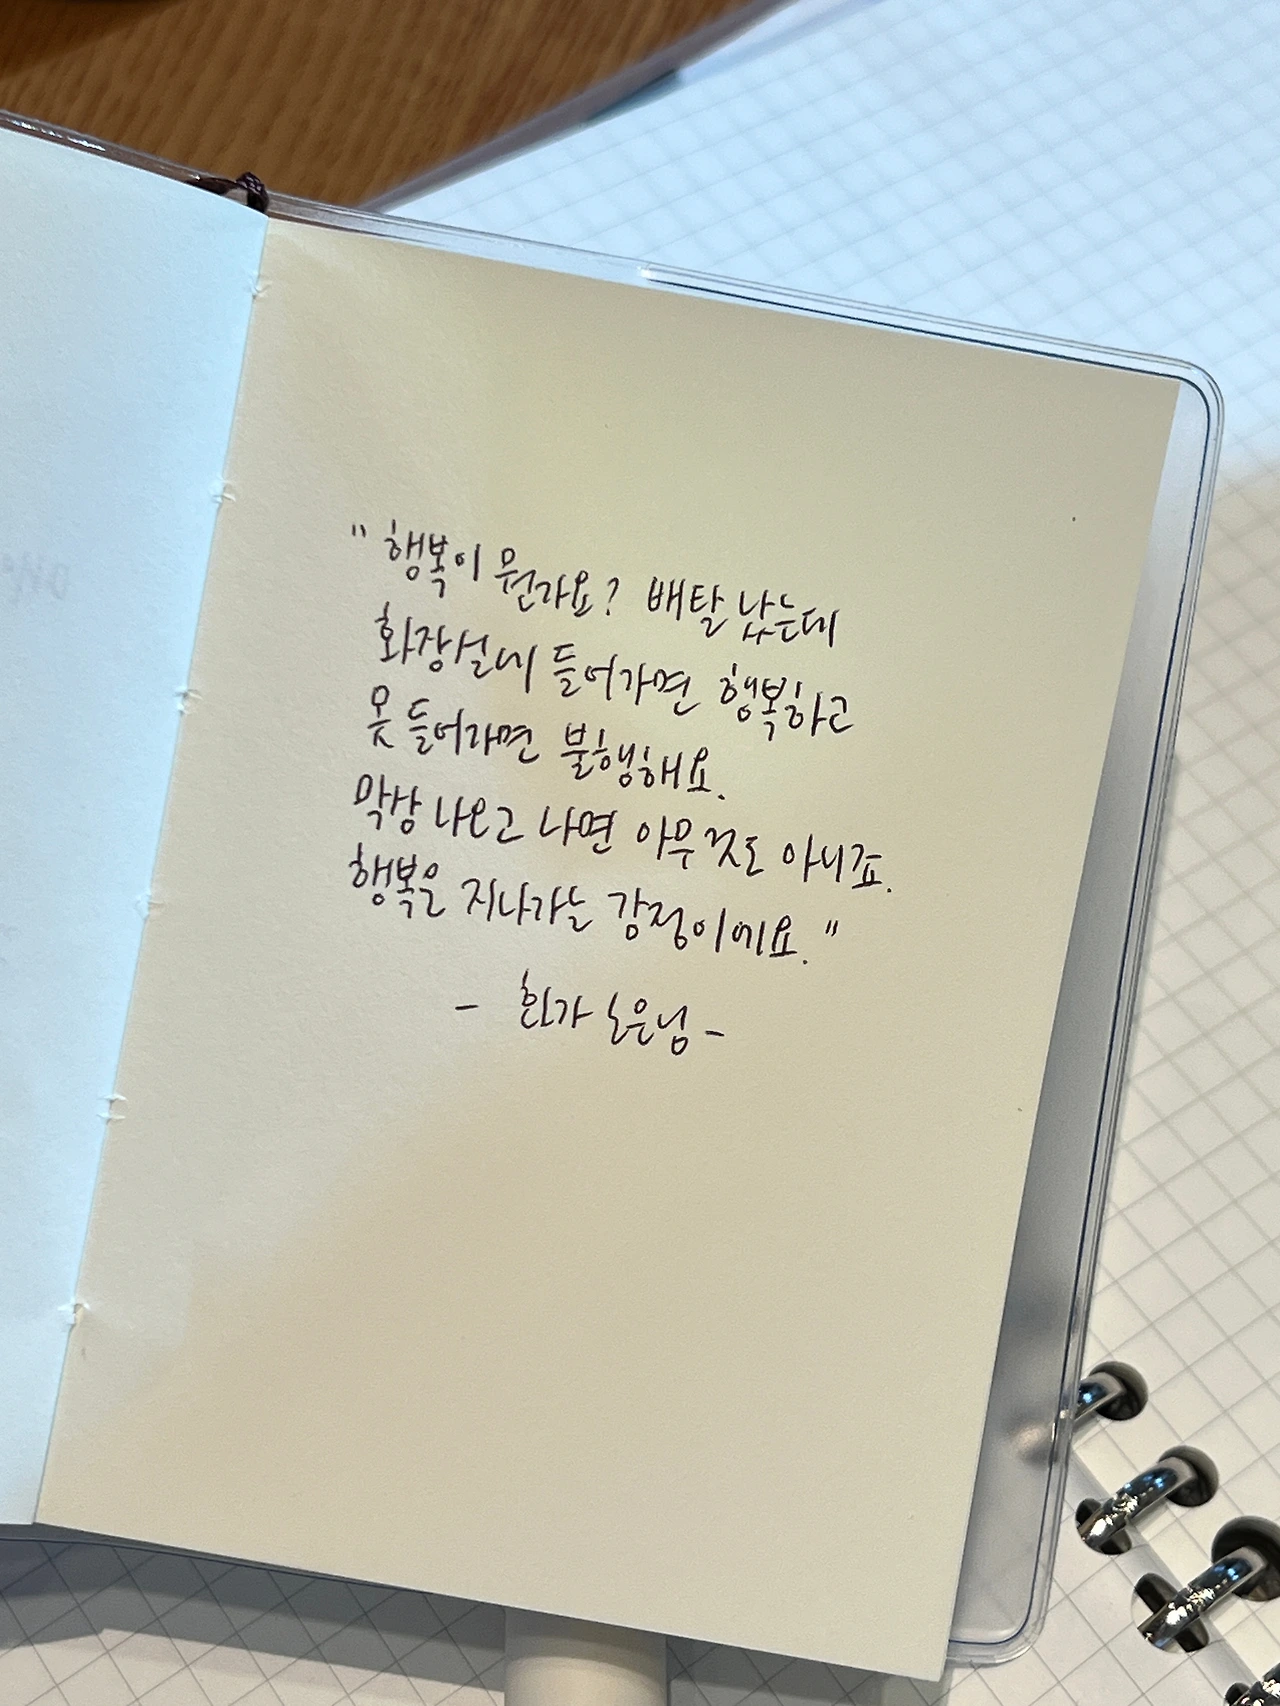 "행복이 뭔가요? 배탈 났는데
화장실에 들어가면 행복하고
못 들어가면 불행해요.
막상 나오고 나면 아무것도 아니죠.
행복은 지나가는 감정이에요."
- 화가 노은님 -